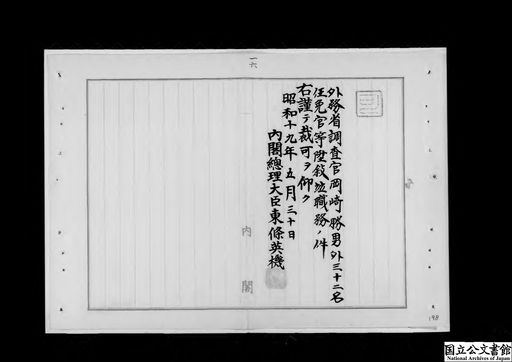 一六
外務省調査官岡崎勝男外三十二名
任免官等陞敍竝職務ノ件
右謹テ裁可ヲ仰ク
昭和十九年五月三十日
内閣總理大臣東條英機
内閣
198
国立公文書館
National Archives of Japan